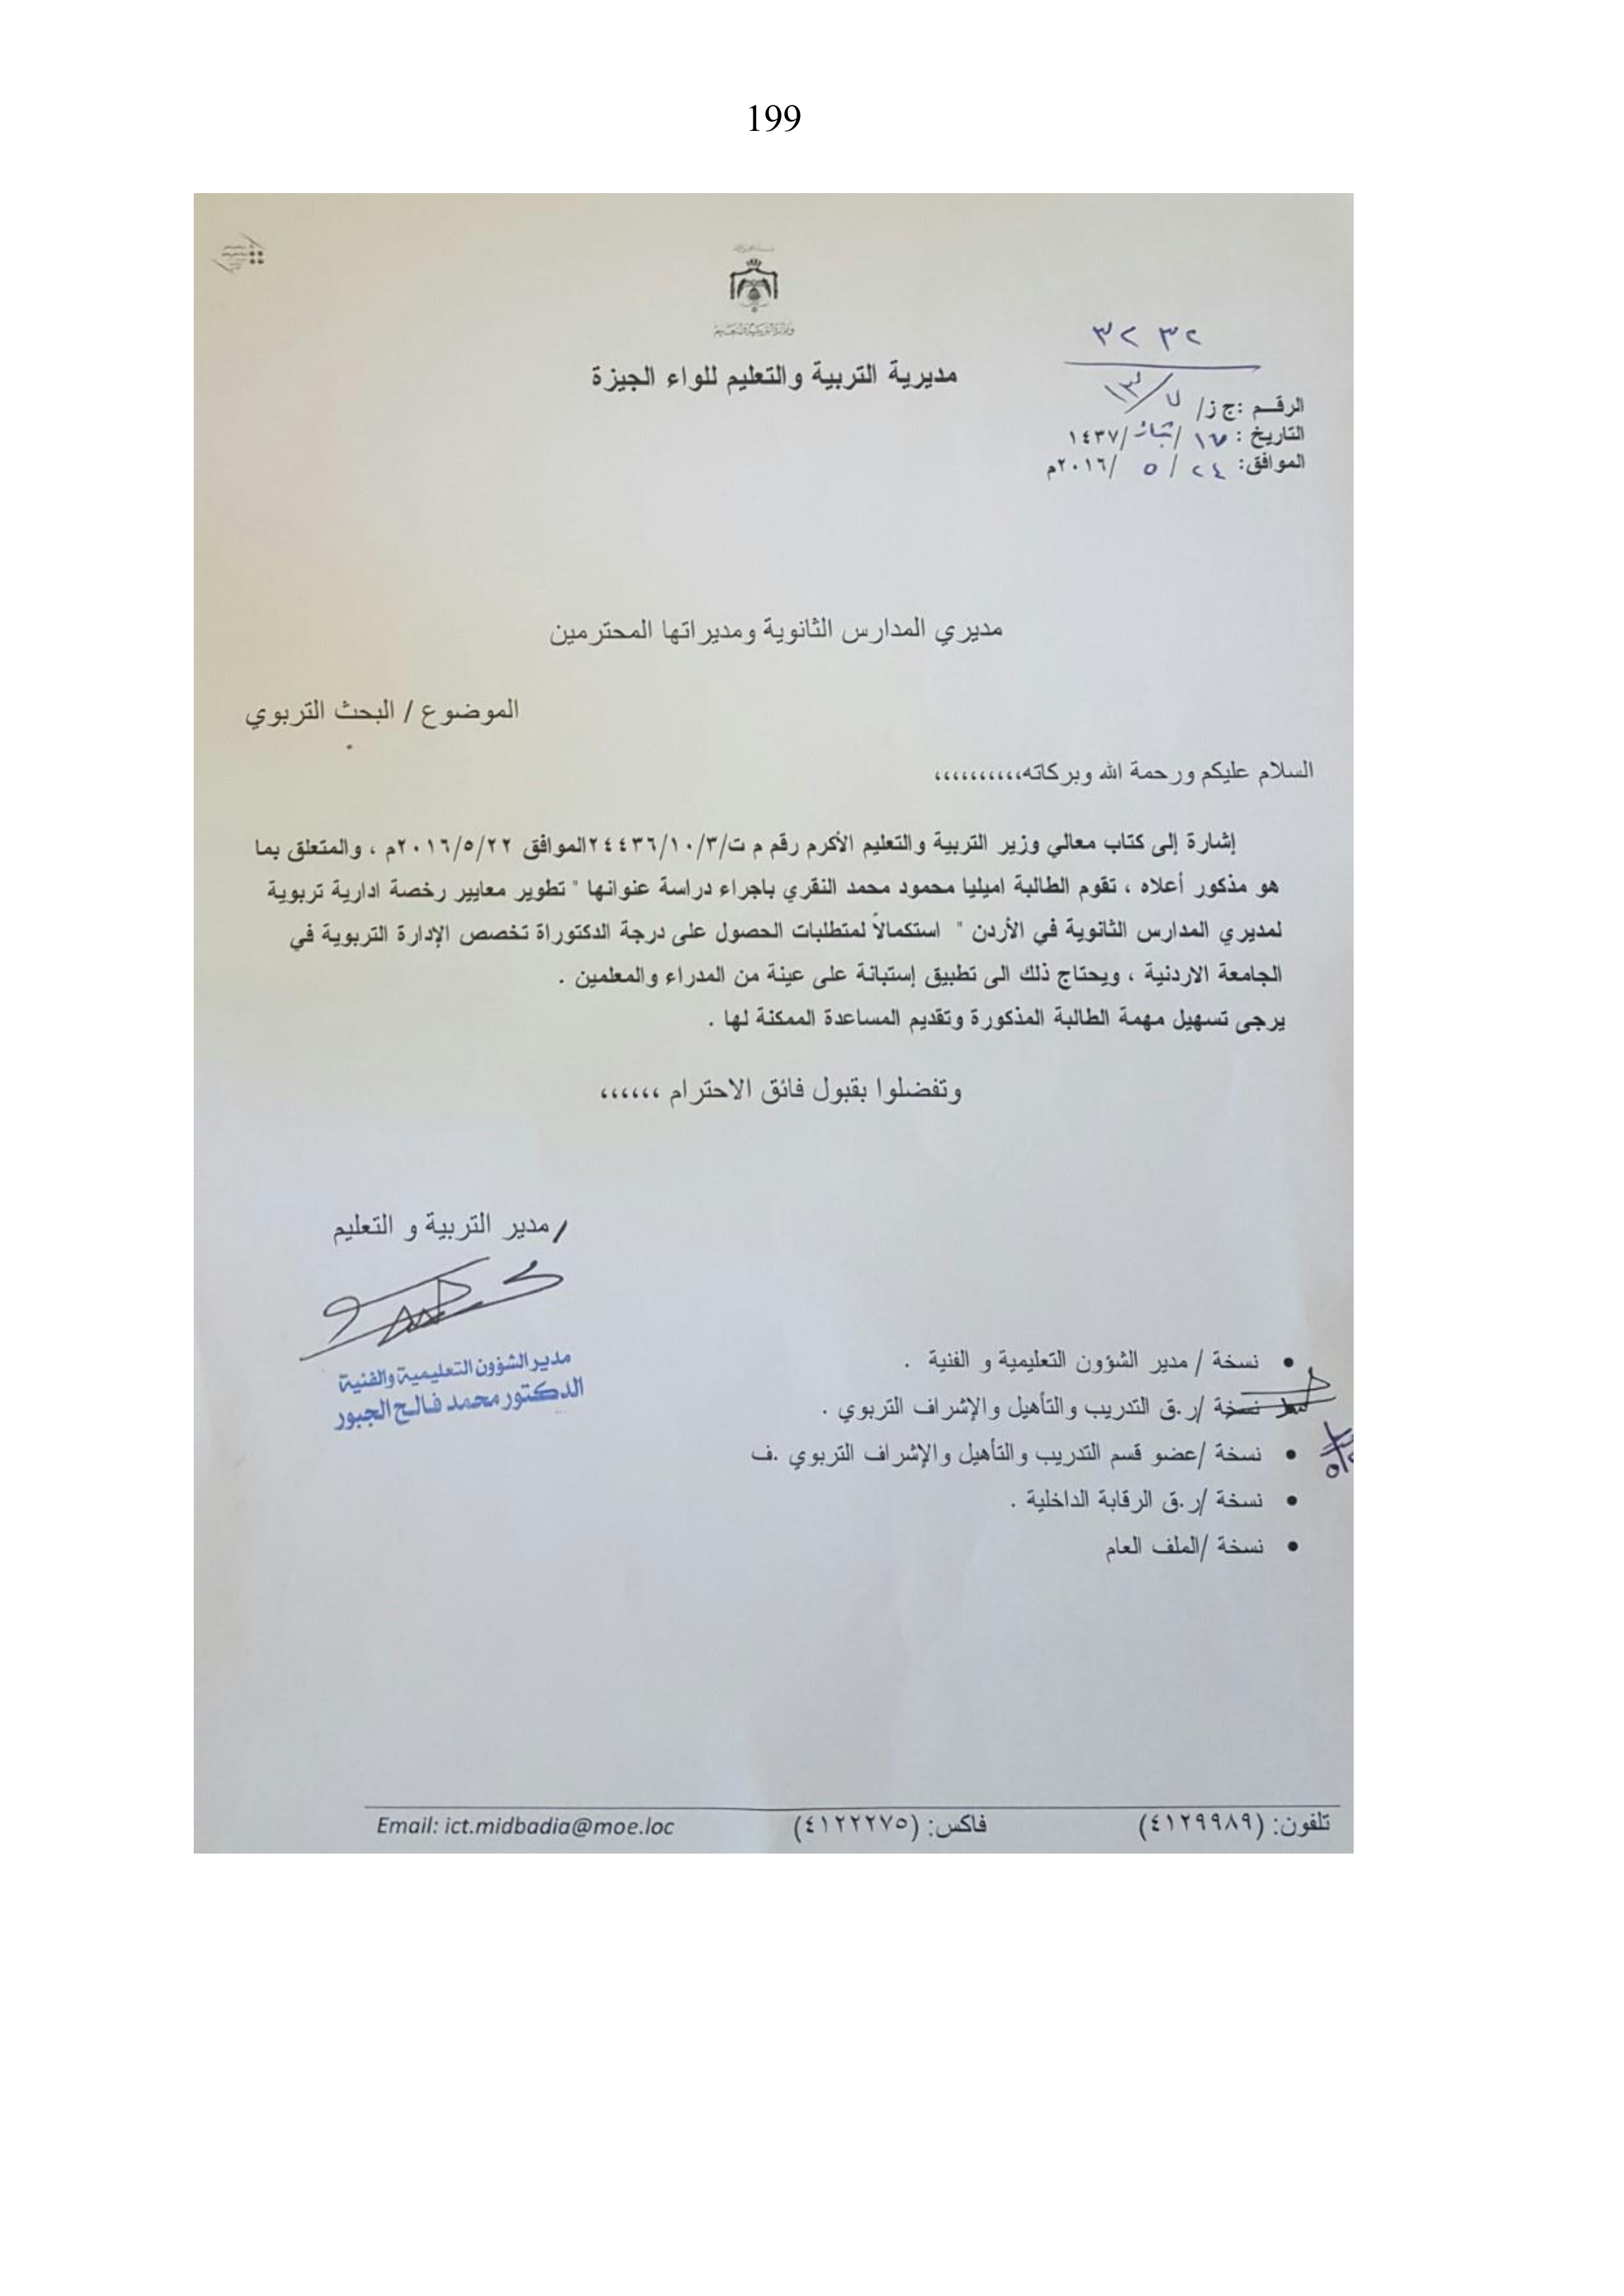 199
وزارة التربية والتعليم
مديرية التربية والتعليم للواء الجيزة
٣٢٣٢
الرقـم :ج ز/ ٧/١٣
التاريخ : ١٧ /شعبان/١٤٣٧
الموافق: ٢٤ / ٥ /٢٠١٦م
مديري المدارس الثانوية ومديراتها المحترمين
الموضوع / البحث التربوي
السلام عليكم ورحمة الله وبركاته،،،،،،،،،،
إشارة إلى كتاب معالي وزير التربية والتعليم الأكرم رقم م ت/٢٤٤٣٦/١٠/٣الموافق ٢٠١٦/٥/٢٢م ، والمتعلق بما
هو مذكور أعلاه ، تقوم الطالبة اميليا محمود محمد النقري باجراء دراسة عنوانها " تطوير معايير رخصة ادارية تربوية
لمديري المدارس الثانوية في الأردن " استكمالاً لمتطلبات الحصول على درجة الدكتوراة تخصص الإدارة التربوية في
الجامعة الاردنية ، ويحتاج ذلك الى تطبيق إستبانة على عينة من المدراء والمعلمين .
يرجى تسهيل مهمة الطالبة المذكورة وتقديم المساعدة الممكنة لها .
وتفضلوا بقبول فائق الاحترام ،،،،،،
/مدير التربية و التعليم
مدير الشؤون التعليمية والفنية
الدكتور محمد فالح الجبور
• نسخة / مدير الشؤون التعليمية و الفنية .
نسخة /ر.ق التدريب والتأهيل والإشراف التربوي .
• نسخة /عضو قسم التدريب والتأهيل والإشراف التربوي .ف
• نسخة /ر.ق الرقابة الداخلية .
• نسخة /الملف العام
تلفون: (٤١٢٩٩٨٩) فاكس: (٤١٢٢٢٧٥) Email: ict.midbadia@moe.loc